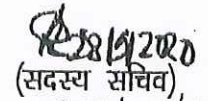 28/9/2020
(सदस्य सचिव)